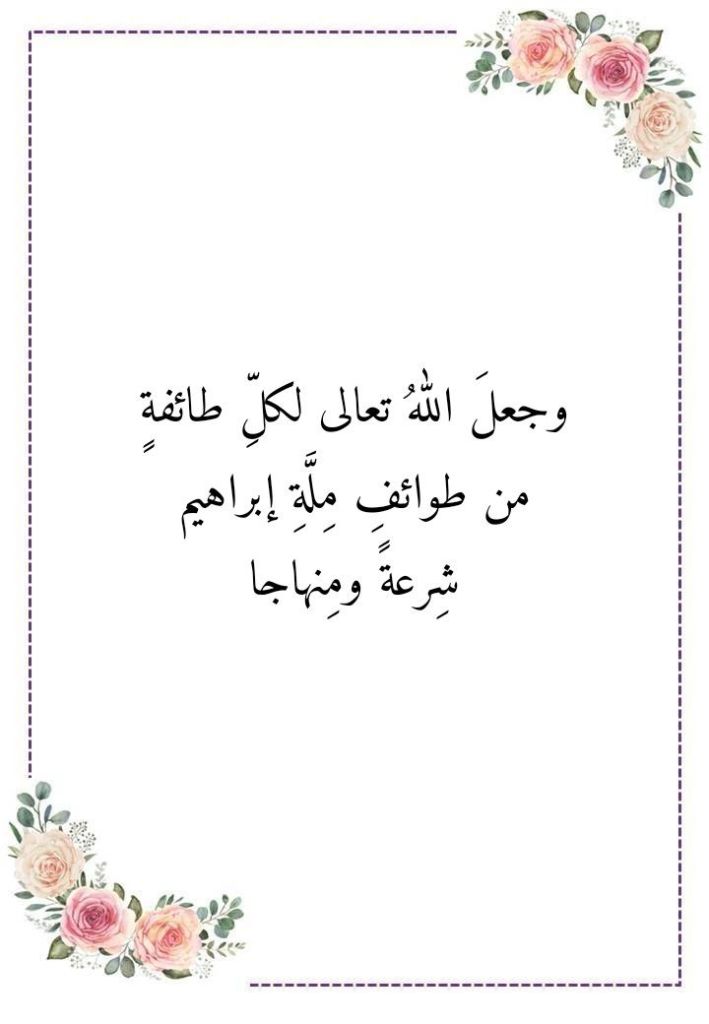 وجعلَ اللهُ تعالى لكلِّ طائفةٍ
من طوائفِ مِلَّةِ إبراهيم
شِرعةً ومِنهاجا